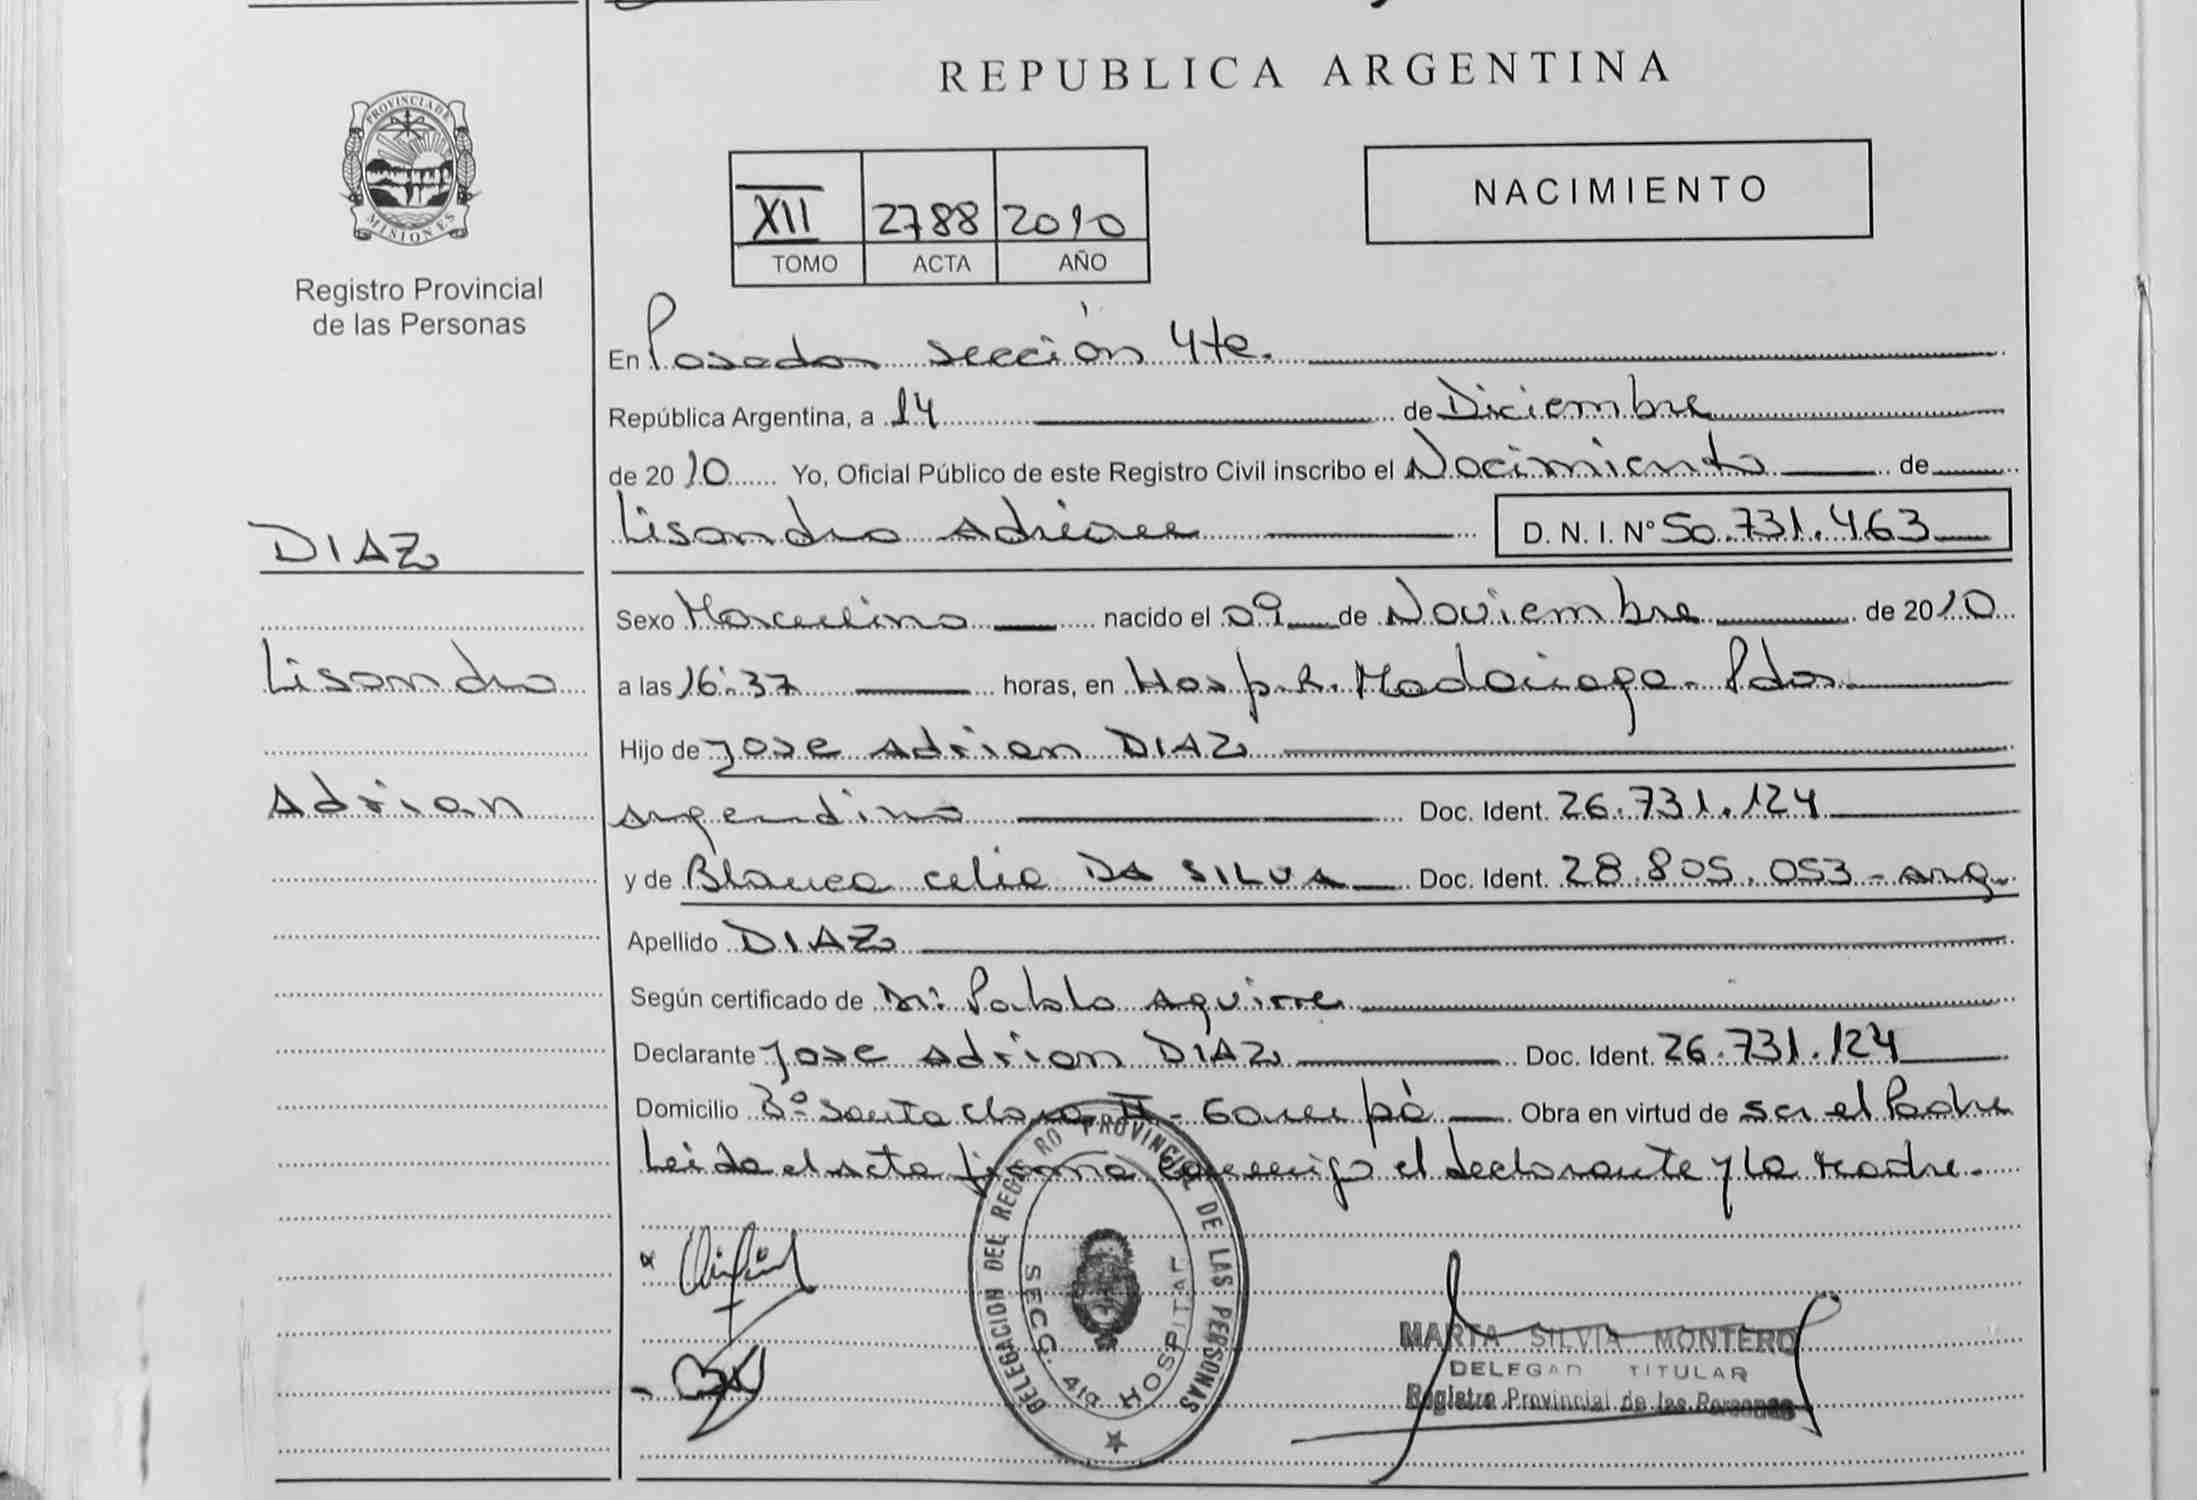 REPUBLICA ARGENTINA
PROVINCIA DE
MISIONES
Registro Provincial
de las Personas
XII 2788 2010
TOMO ACTA AÑO
NACIMIENTO
En Posadas sección 4ta.
República Argentina, a 14 de Diciembre
de 2010 Yo, Oficial Público de este Registro Civil inscribo el Nacimiento de
DIAZ
Lisandro Adrian
Lisandro Adrian D. N. I. Nº 50.731.463
Sexo Masculino nacido el 09 de Noviembre de 2010
a las 16:37 horas, en Hosp. R. Madariaga - Pdas
Hijo de Jose Adrian DIAZ
argentino Doc. Ident. 26.731.124
y de Blanca Celia DA SILVA Doc. Ident. 28.805.053 - arg.
Apellido DIAZ
Según certificado de Dr: Pablo Aguirre
Declarante Jose Adrian DIAZ Doc. Ident. 26.731.124
Domicilio Bº Santa Clara II - Garupá Obra en virtud de ser el Padre
Leida el acta firma conmigo el declarante y la madre.
DELEGACION DEL REGISTRO PROVINCIAL DE LAS PERSONAS
SECC. 4ta HOSPITAL
MARTA SILVIA MONTERO
DELEGAD TITULAR
Registro Provincial de las Personas